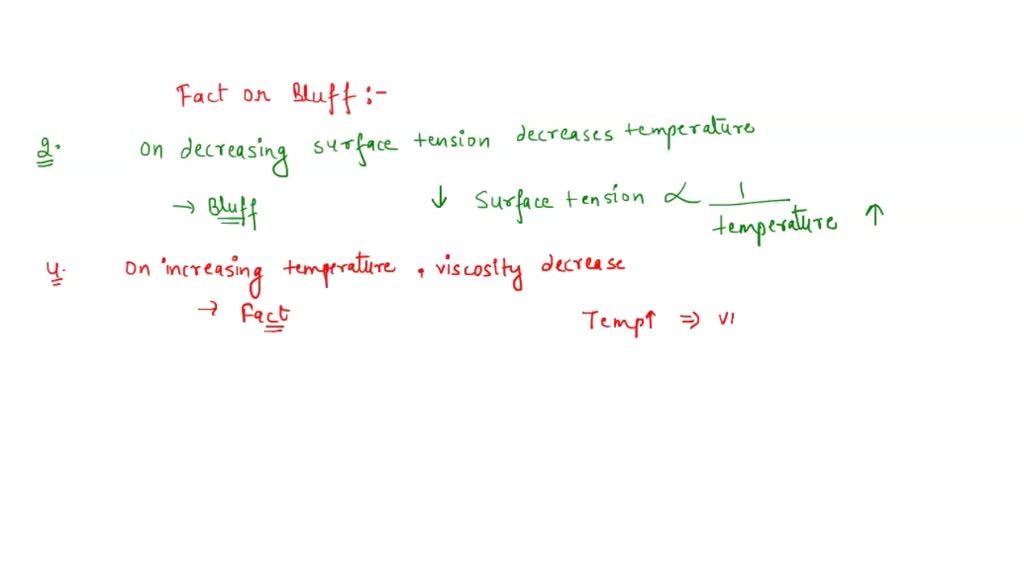 Fact or Bluff :-
2. on decreasing surface tension decreases temperature
→ Bluff ↓ Surface tension ∝ 1 / temperature ↑
4. on increasing temperature, viscosity decrease
→ Fact Temp↑ ⇒ vi